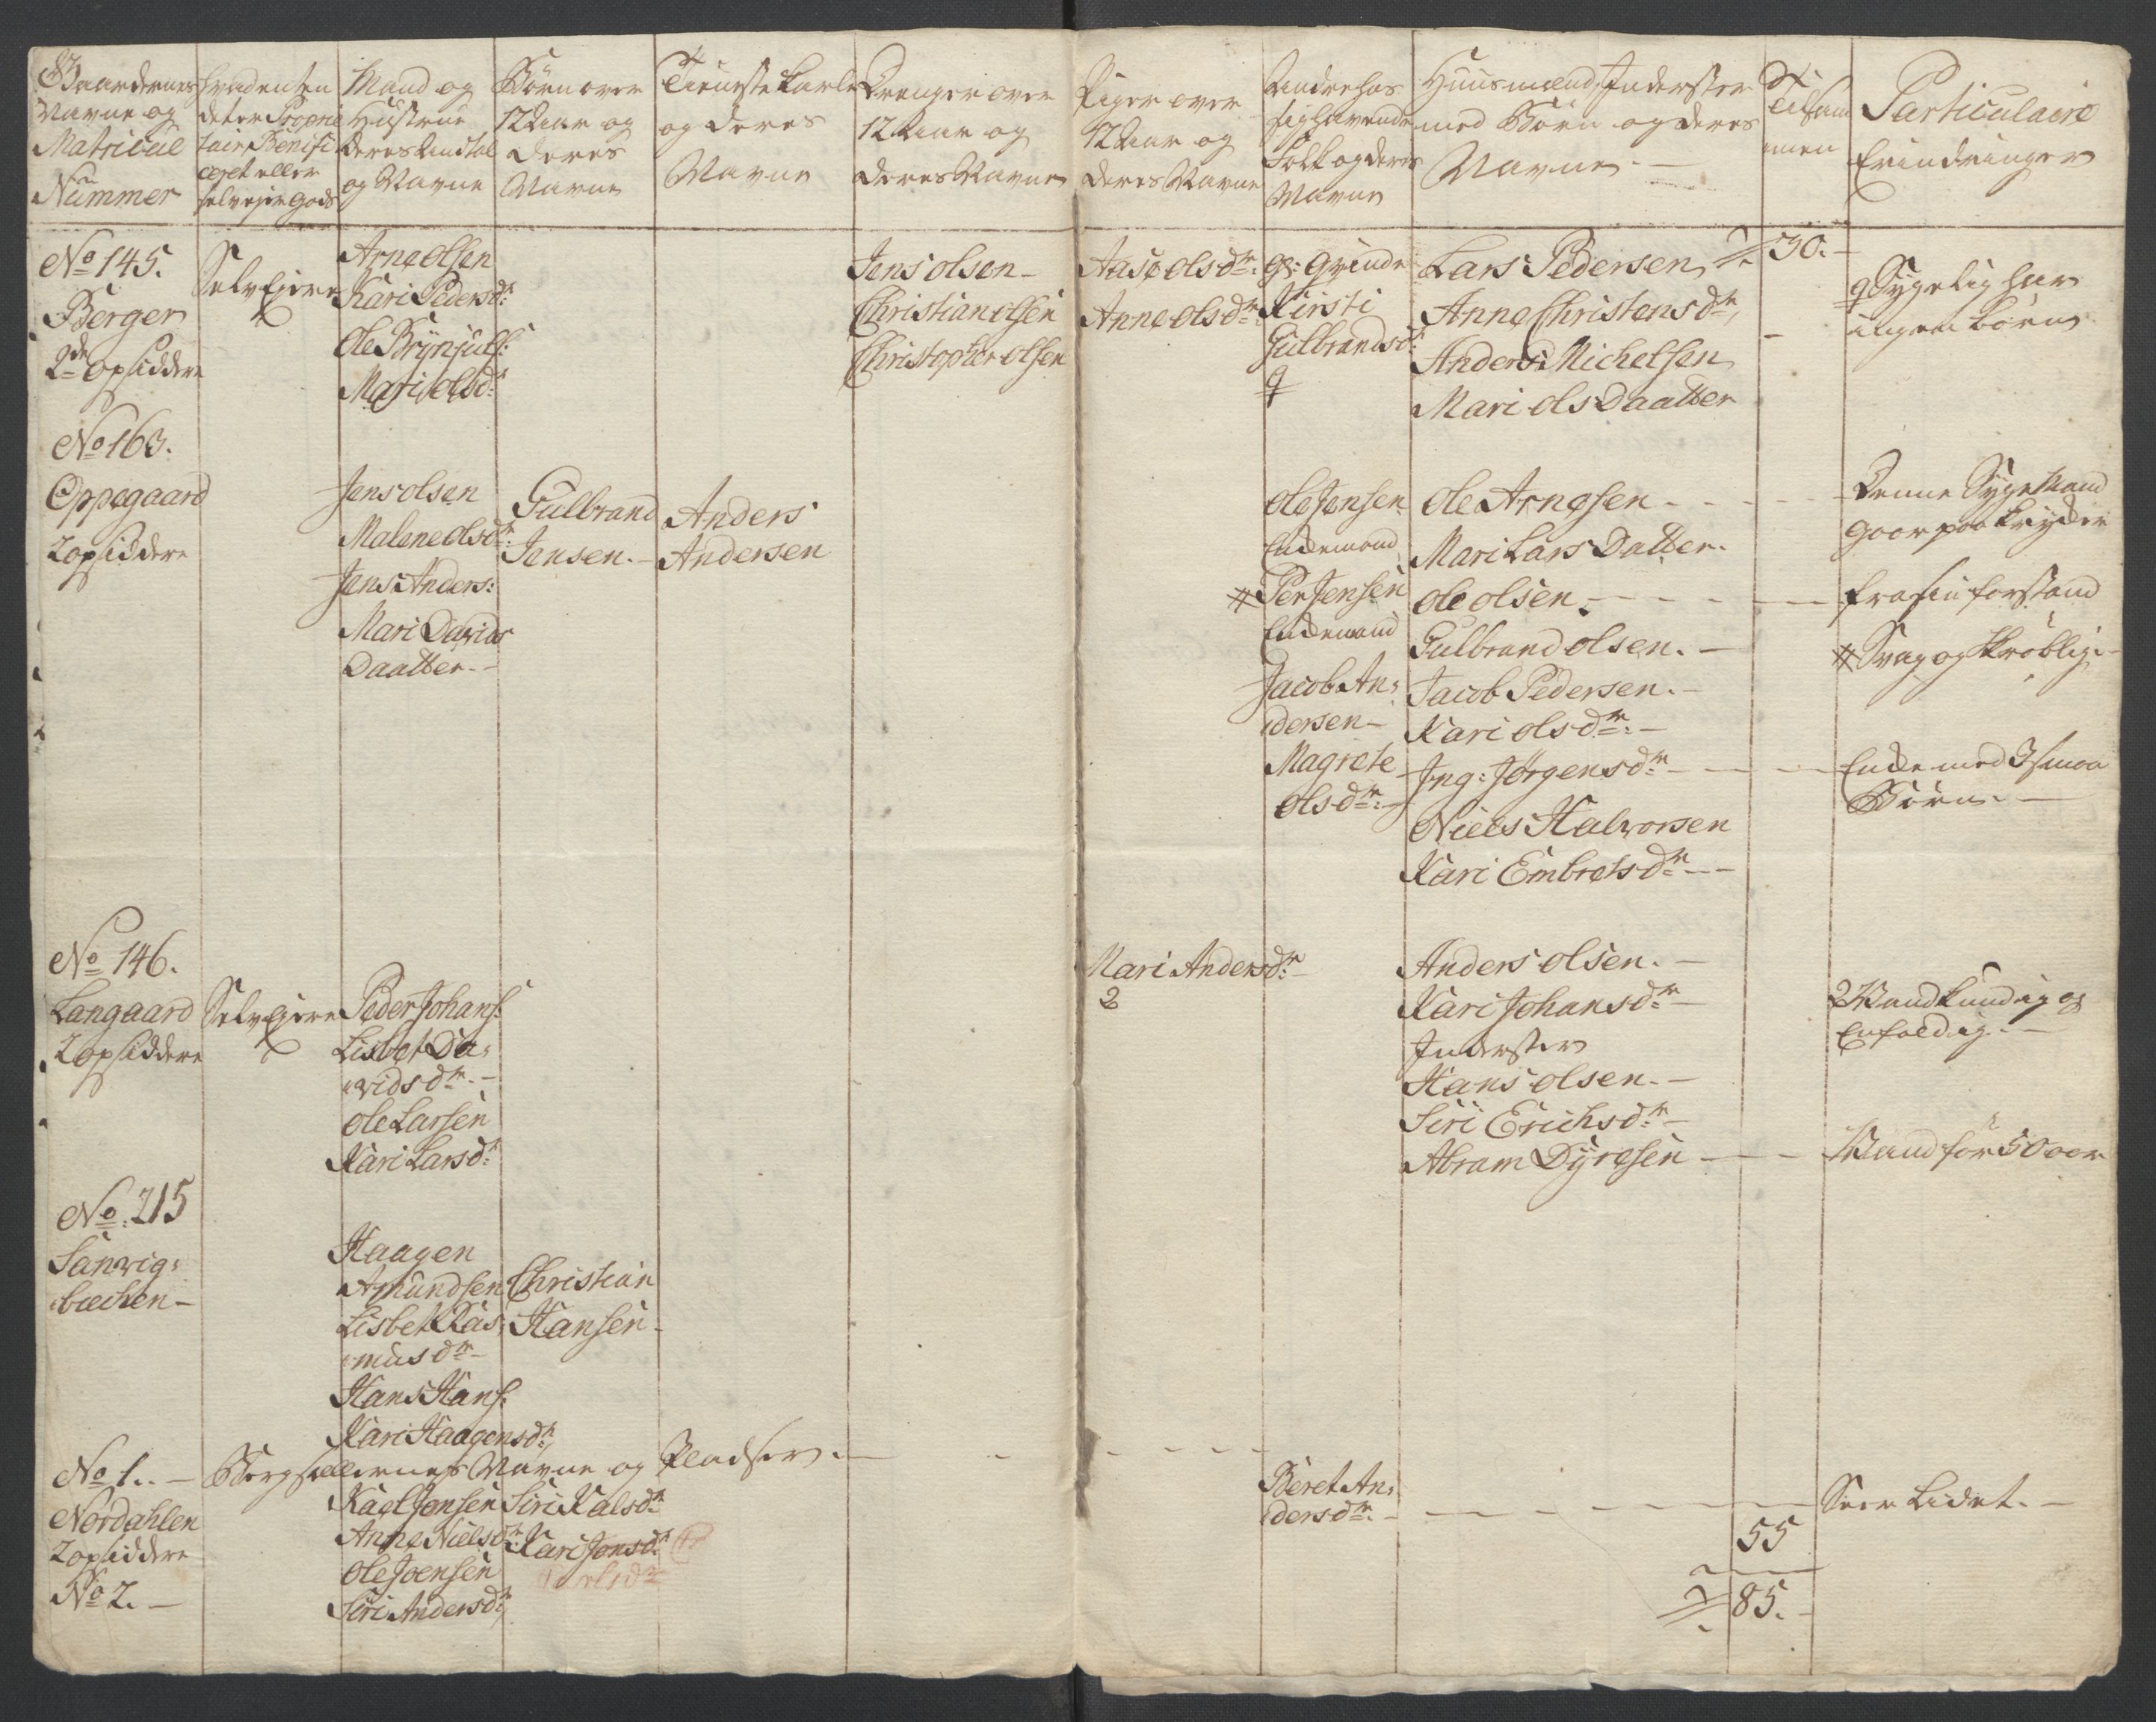 Gaardernes
Navne og
Matricul
Nummer
hvad enten
det er Proprie
tair, Benifi
ceret eller
selveyer gods
Mand og
Hustrue
deres Antal
og Navne
Børn over
12 Aar og
deres
Navne
Tieneste Karle
og deres
Navne
Drenger over
12 Aar og
deres Navne
Piger over
12 Aar og
deres Navne
Andre hos
sig havende
Folk og deres
Navne
Huusmænd, Inderster
med Børn og deres
Navne. —
Tilsam
men
Particulaire
Erindringer
No 145.
Berger
2de opsiddere
Selvejere
Arne olsen
Kari Pedersdr:
Ole Brynjuls:
Mari olsdr
Jens olsen —
Christian olsen
Christopher olsen
Aase olsdr:
Anne olsdr:
Kirsti
Gulbransdr:
Lars Pedersen
Anne Christensdr,
Anders Michelsen
Mari ols Daatter
30. —
Sygelig har
ingen børn
No 163.
Oppegaard
2 opsiddere
Jens olsen
Malene olsdr:
Jens Anders:
Mari Davids
Daatter. —
Gulbrand
Jensen. —
Anders
Andersen
Ole Jensen
Enkemand
# Per Jensen
Enkemand
Jacob An:
dersen —
Magrete
olsdr: —
Ole Arnesen — — —
Mari Lars Datter.
Ole olsen. — — —
Gulbrand olsen. —
Jacob Pedersen. —
Kari olsdr: —
Ing: Jørgensdr — — —
Niels Halvorsen
Kari Embretsdr — —
Denne Syge Mand
gaar paa krykker
fra sin forstand
# Svag og skrøblig. —
Enke med 3 smaa
Børn. —
No 146.
Langaard
2 opsiddere
Selvejere
Peder Johans:
Lisbet Da:
vidsdr. —
Ole Larsen
Kari Larsdr:
Mari Andersdr: —
2
Anders olsen. —
Kari Johansdr —
Inderster
Hans olsen. —
Siri Erichsdr —
Abram Dyresen — —
2 Vandkundig og
Enfoldig. —
Mand for 50 aar
No: 215
Sanvig:
bachen —
Haagen
Amundsen
Lisbet Ras:
musdr —
Hans Hans:
Kari Haagensdr,
Christian
Hansen —
No 1. — Bergsellernes Navne og Pladser. —
Nordahlen
2 opsiddere
No 2. —
Kael Jonsen
Anne Nielsdr:
Ole Joensen
Siri Andersdr,
Siri Kalsdr
Kari Jonsdr
Beret An:
dersdr. — — — —
Seer Lidet. —
55
85. —